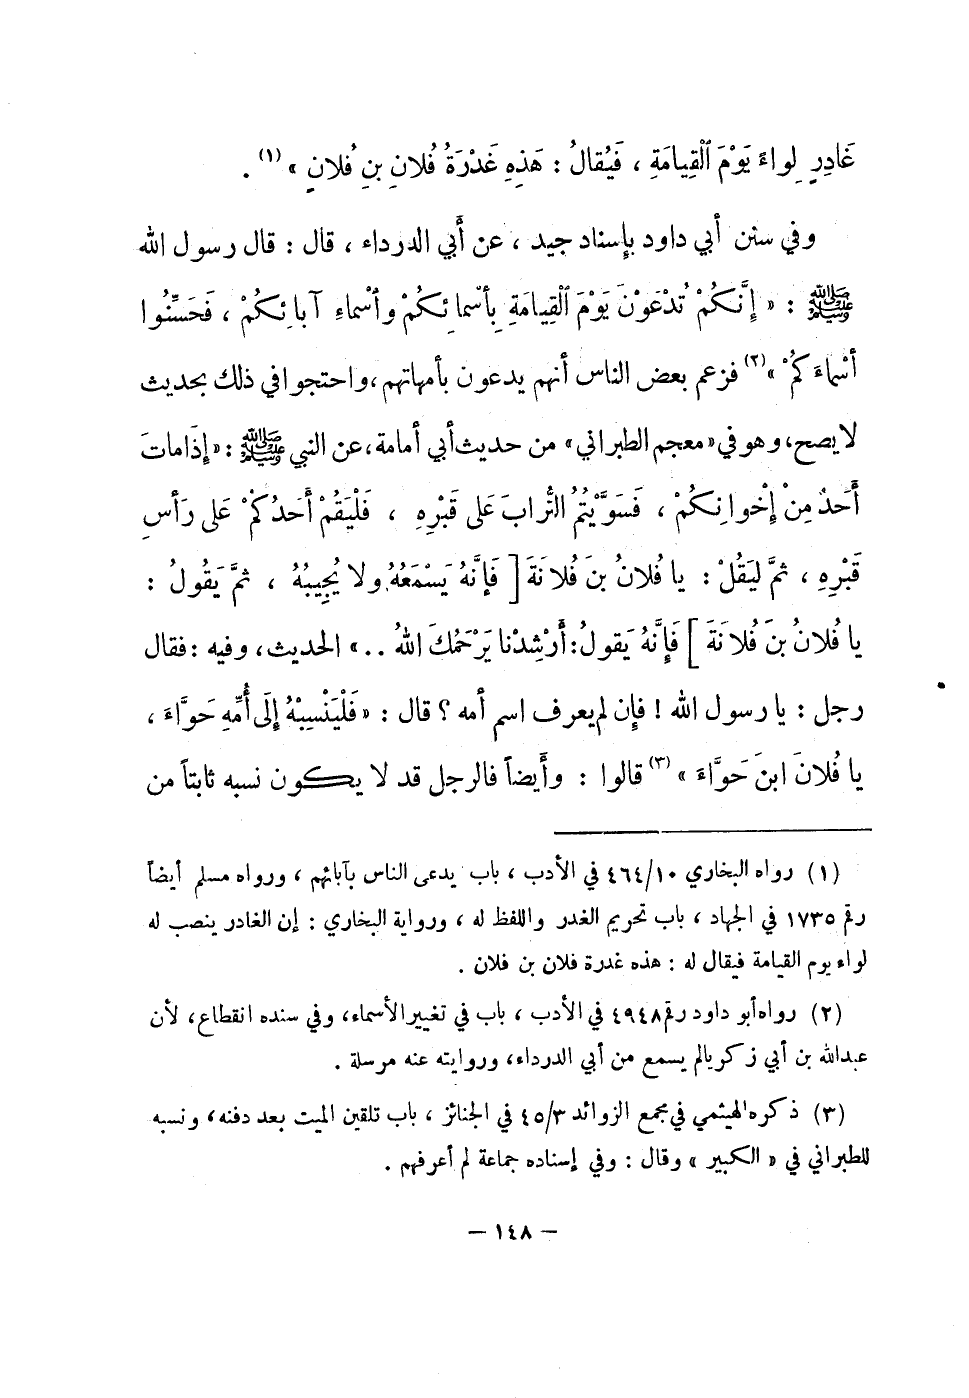 غَادِرٍ لِواءً يَوْمَ ٱلْقِيامَةِ ، فَيُقالُ : هَذِهِ غَدْرَةُ فُلانِ بنِ فُلانٍ » (١) .
وفي سنن أبي داود بإسناد جيد ، عن أبي الدرداء ، قال : قال رسول الله
ﷺ : « إِنَّكُمْ تُدْعَوْنَ يَوْمَ ٱلْقِيامَةِ بِأَسْمائِكُمْ وأَسْماءِ آبائِكُمْ ، فَحَسِّنُوا
أَسْماءَكُمْ » (٢) فزعم بعض الناس أنهم يدعون بأمهاتهم ، واحتجوا في ذلك بحديث
لا يصح ، وهو في « معجم الطبراني » من حديث أبي أمامة ، عن النبي ﷺ : « إِذَا ماتَ
أَحَدٌ مِنْ إِخْوانِكُمْ ، فَسَوَّيْتُمُ التُّرابَ عَلى قَبْرِهِ ، فَلْيَقُمْ أَحَدُكُمْ عَلى رَأسِ
قَبْرِهِ ، ثمَّ لْيَقُلْ : يا فُلانُ بنَ فُلانَةَ [ فَإِنَّهُ يَسْمَعُهُ ولا يُجِيبُهُ ، ثمَّ يَقُولُ :
يا فُلانُ بنَ فُلانَةَ ] فَإِنَّهُ يَقولُ : أَرْشِدْنا يَرْحَمُكَ اللهُ .. » الحديث ، وفيه : فقال
رجل : يا رسول الله ! فإن لم يعرف اسم أمه ؟ قال : « فَلْيَنْسِبْهُ إِلَى أُمِّهِ حَوَّاءَ ،
يا فُلانَ ابنَ حَوَّاءَ » (٣) قالوا : وأيضاً فالرجل قد لا يكون نسبه ثابتاً من
(١) رواه البخاري ٤٦٤/١٠ في الأدب ، باب يدعى الناس بآبائهم ، ورواه مسلم أيضاً
رقم ١٧٣٥ في الجهاد ، باب تحريم الغدر واللفظ له ، ورواية البخاري : إن الغادر ينصب له
لواء يوم القيامة فيقال له : هذه غدرة فلان بن فلان .
(٢) رواه أبو داود رقم ٤٩٤٨ في الأدب ، باب في تغيير الأسماء ، وفي سنده انقطاع ، لأن
عبدالله بن أبي زكريا لم يسمع من أبي الدرداء ، وروايته عنه مرسلة .
(٣) ذكره الهيثمي في مجمع الزوائد ٤٥/٣ في الجنائز ، باب تلقين الميت بعد دفنه ، ونسبه
للطبراني في « الكبير » وقال : وفي إسناده جماعة لم أعرفهم .
— ١٤٨ —